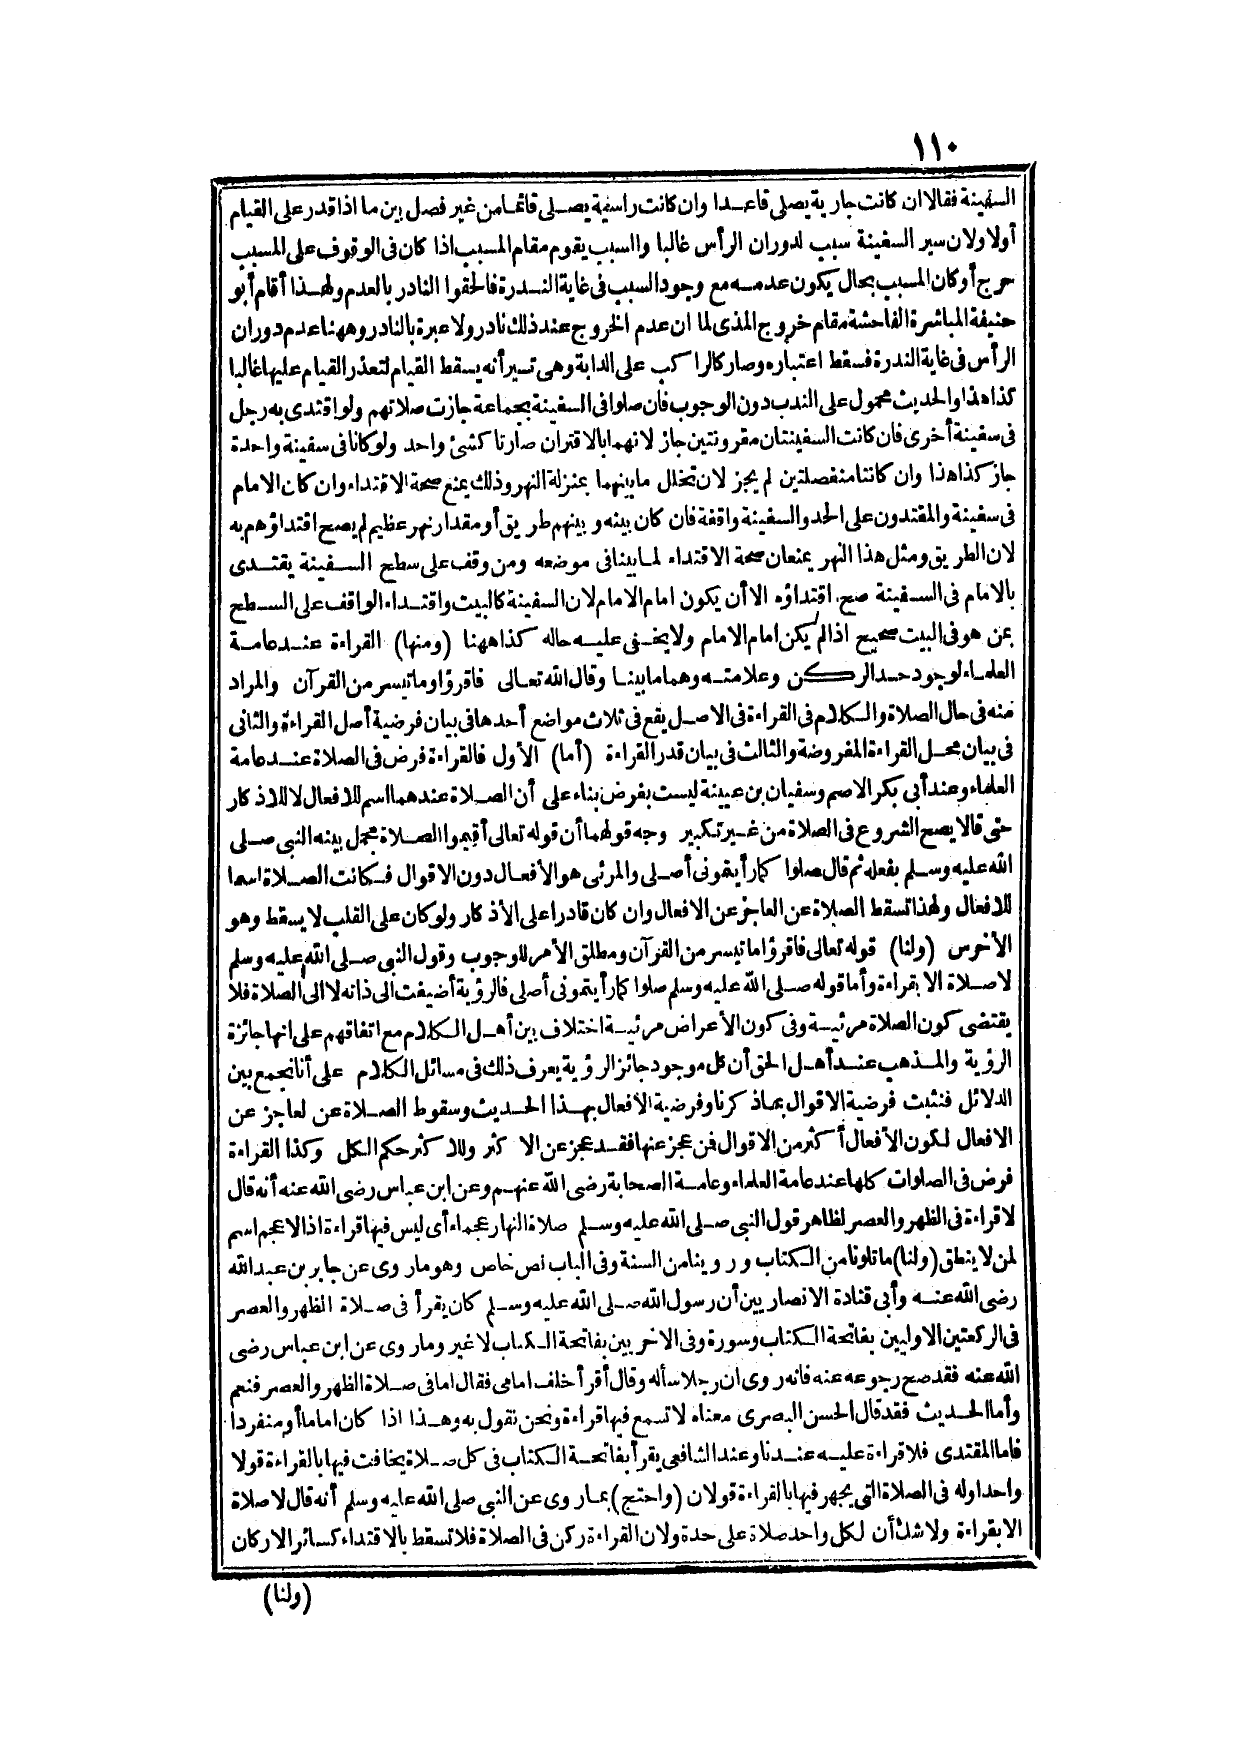 ١١٠
السفينة فقالا ان كانت جارية يصلي قاعدا وان كانت راسية يصلي قائما من غير فصل بين ما اذا قدر على القيام
أولا ولان سير السفينة سبب لدوران الرأس غالبا والسبب يقوم مقام المسبب اذا كان في الوقوف على المسبب
حرج أو كان المسبب بحال يكون عدمه مع وجود السبب في غاية الندرة فالحقوا النادر بالعدم ولهذا أقام أبو
حنيفة المباشرة الفاحشة مقام خروج المذى لما ان عدم الخروج عند ذلك نادر ولا عبرة بالنادر وههنا عدم دوران
الرأس في غاية الندرة فسقط اعتباره وصار كالراكب على الدابة وهى تسير أنه يسقط القيام لتعذر القيام عليها غالبا
كذا هذا والحديث محمول على الندب دون الوجوب فان صلوا في السفينة بجماعة جازت صلاتهم ولو اقتدى به رجل
في سفينة أخرى فان كانت السفينتان مقرونتين جاز لانهما بالاقتران صارتا كشئ واحد ولو كانا في سفينة واحدة
جاز كذا هذا وان كانتا منفصلتين لم يجز لان تخلل ما بينهما بمنزلة النهر وذلك يمنع صحة الاقتداء وان كان الامام
في سفينة والمقتدون على الحد والسفينة واقفة فان كان بينه وبينهم طريق أو مقدار نهر عظيم لم يصح اقتداؤهم به
لان الطريق ومثل هذا النهر يمنعان صحة الاقتداء لما بينا في موضعه ومن وقف على سطح السفينة يقتدى
بالامام في السفينة صح اقتداؤه الا أن يكون امام الامام لان السفينة كالبيت واقتداء الواقف على السطح
بمن هو في البيت صحيح اذا لم يكن امام الامام ولا يخفى عليه حاله كذا ههنا (ومنها) القراءة عند عامة
العلماء لوجود حد الركن وعلامته وهما ما بينا وقال الله تعالى فاقرؤا وما تيسر من القرآن والمراد
منه في حال الصلاة والكلام في القراءة في الاصل يقع في ثلاث مواضع أحدها في بيان فرضية أصل القراءة والثاني
في بيان محل القراءة المفروضة والثالث في بيان قدر القراءة (أما) الأول فالقراءة فرض في الصلاة عند عامة
العلماء وعند أبي بكر الاصم وسفيان بن عيينة ليست بفرض بناء على أن الصلاة عندهما اسم للافعال لا للاذكار
حتى قالا يصح الشروع في الصلاة من غير تكبير وجه قولهما أن قوله تعالى أقيموا الصلاة مجمل بينه النبي صلى
الله عليه وسلم بفعله ثم قال صلوا كما رأيتموني أصلى والمرئى هو الأفعال دون الاقوال فكانت الصلاة اسما
للافعال ولهذا تسقط الصلاة عن العاجز عن الافعال وان كان قادرا على الأذكار ولو كان على القلب لا يسقط وهو
الأخرس (ولنا) قوله تعالى فاقرؤا ما تيسر من القرآن ومطلق الأمر للوجوب وقول النبي صلى الله عليه وسلم
لا صلاة الا بقراءة وأما قوله صلى الله عليه وسلم صلوا كما رأيتموني أصلى فالرؤية أضيفت الى ذاته لا الى الصلاة فلا
يقتضى كون الصلاة مرئية وفي كون الأعراض مرئية اختلاف بين أهل الكلام مع اتفاقهم على انها جائزة
الرؤية والمذهب عند أهل الحق أن كل موجود جائز الرؤية يعرف ذلك في مسائل الكلام على أنا نجمع بين
الدلائل فنثبت فرضية الاقوال بما ذكرنا وفرضية الأفعال بهذا الحديث وسقوط الصلاة عن لعاجز عن
الافعال لكون الأفعال أكثر من الاقوال فمن عجز عنها فقد عجز عن الاكثر وللاكثر حكم الكل وكذا القراءة
فرض في الصلوات كلها عند عامة العلماء وعامة الصحابة رضى الله عنهم وعن ابن عباس رضى الله عنه أنه قال
لا قراءة في الظهر والعصر لظاهر قول النبي صلى الله عليه وسلم صلاة النهار عجماء أى ليس فيها قراءة اذ الاعجم اسم
لمن لا ينطق (ولنا) ما تلونا من الكتاب وروينا من السنة وفي الباب نص خاص وهو ما روى عن جابر بن عبد الله
رضى الله عنه وأبي قتادة الانصاريين أن رسول الله صلى الله عليه وسلم كان يقرأ في صلاة الظهر والعصر
في الركعتين الاوليين بفاتحة الكتاب وسورة وفي الاخريين بفاتحة الكتاب لا غير وما روى عن ابن عباس رضى
الله عنه فقد صح رجوعه عنه فانه روى ان رجلا سأله وقال أقرأ خلف امامى فقال اما في صلاة الظهر والعصر فنعم
وأما الحديث فقد قال الحسن البصرى معناه لا تسمع فيها قراءة ونحن نقول به وهذا اذا كان اماما أو منفردا
فاما المقتدى فلا قراءة عليه عندنا وعند الشافعى يقرأ بفاتحة الكتاب في كل صلاة يخافت فيها بالقراءة قولا
واحدا وله في الصلاة التي يجهر فيها بالقراءة قولان (واحتج) بما روى عن النبي صلى الله عليه وسلم أنه قال لا صلاة
الا بقراءة ولا شك أن لكل واحد صلاة على حدة ولان القراءة ركن في الصلاة فلا تسقط بالاقتداء كسائر الاركان
(ولنا)